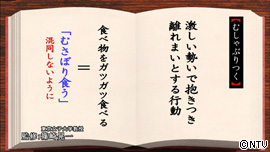 【むしゃぶりつく】
激しい勢いで抱きつき
離れまいとする行動
食べ物をガツガツ食べる
＝
「むさぼり食う」
混同しないように
©NTV